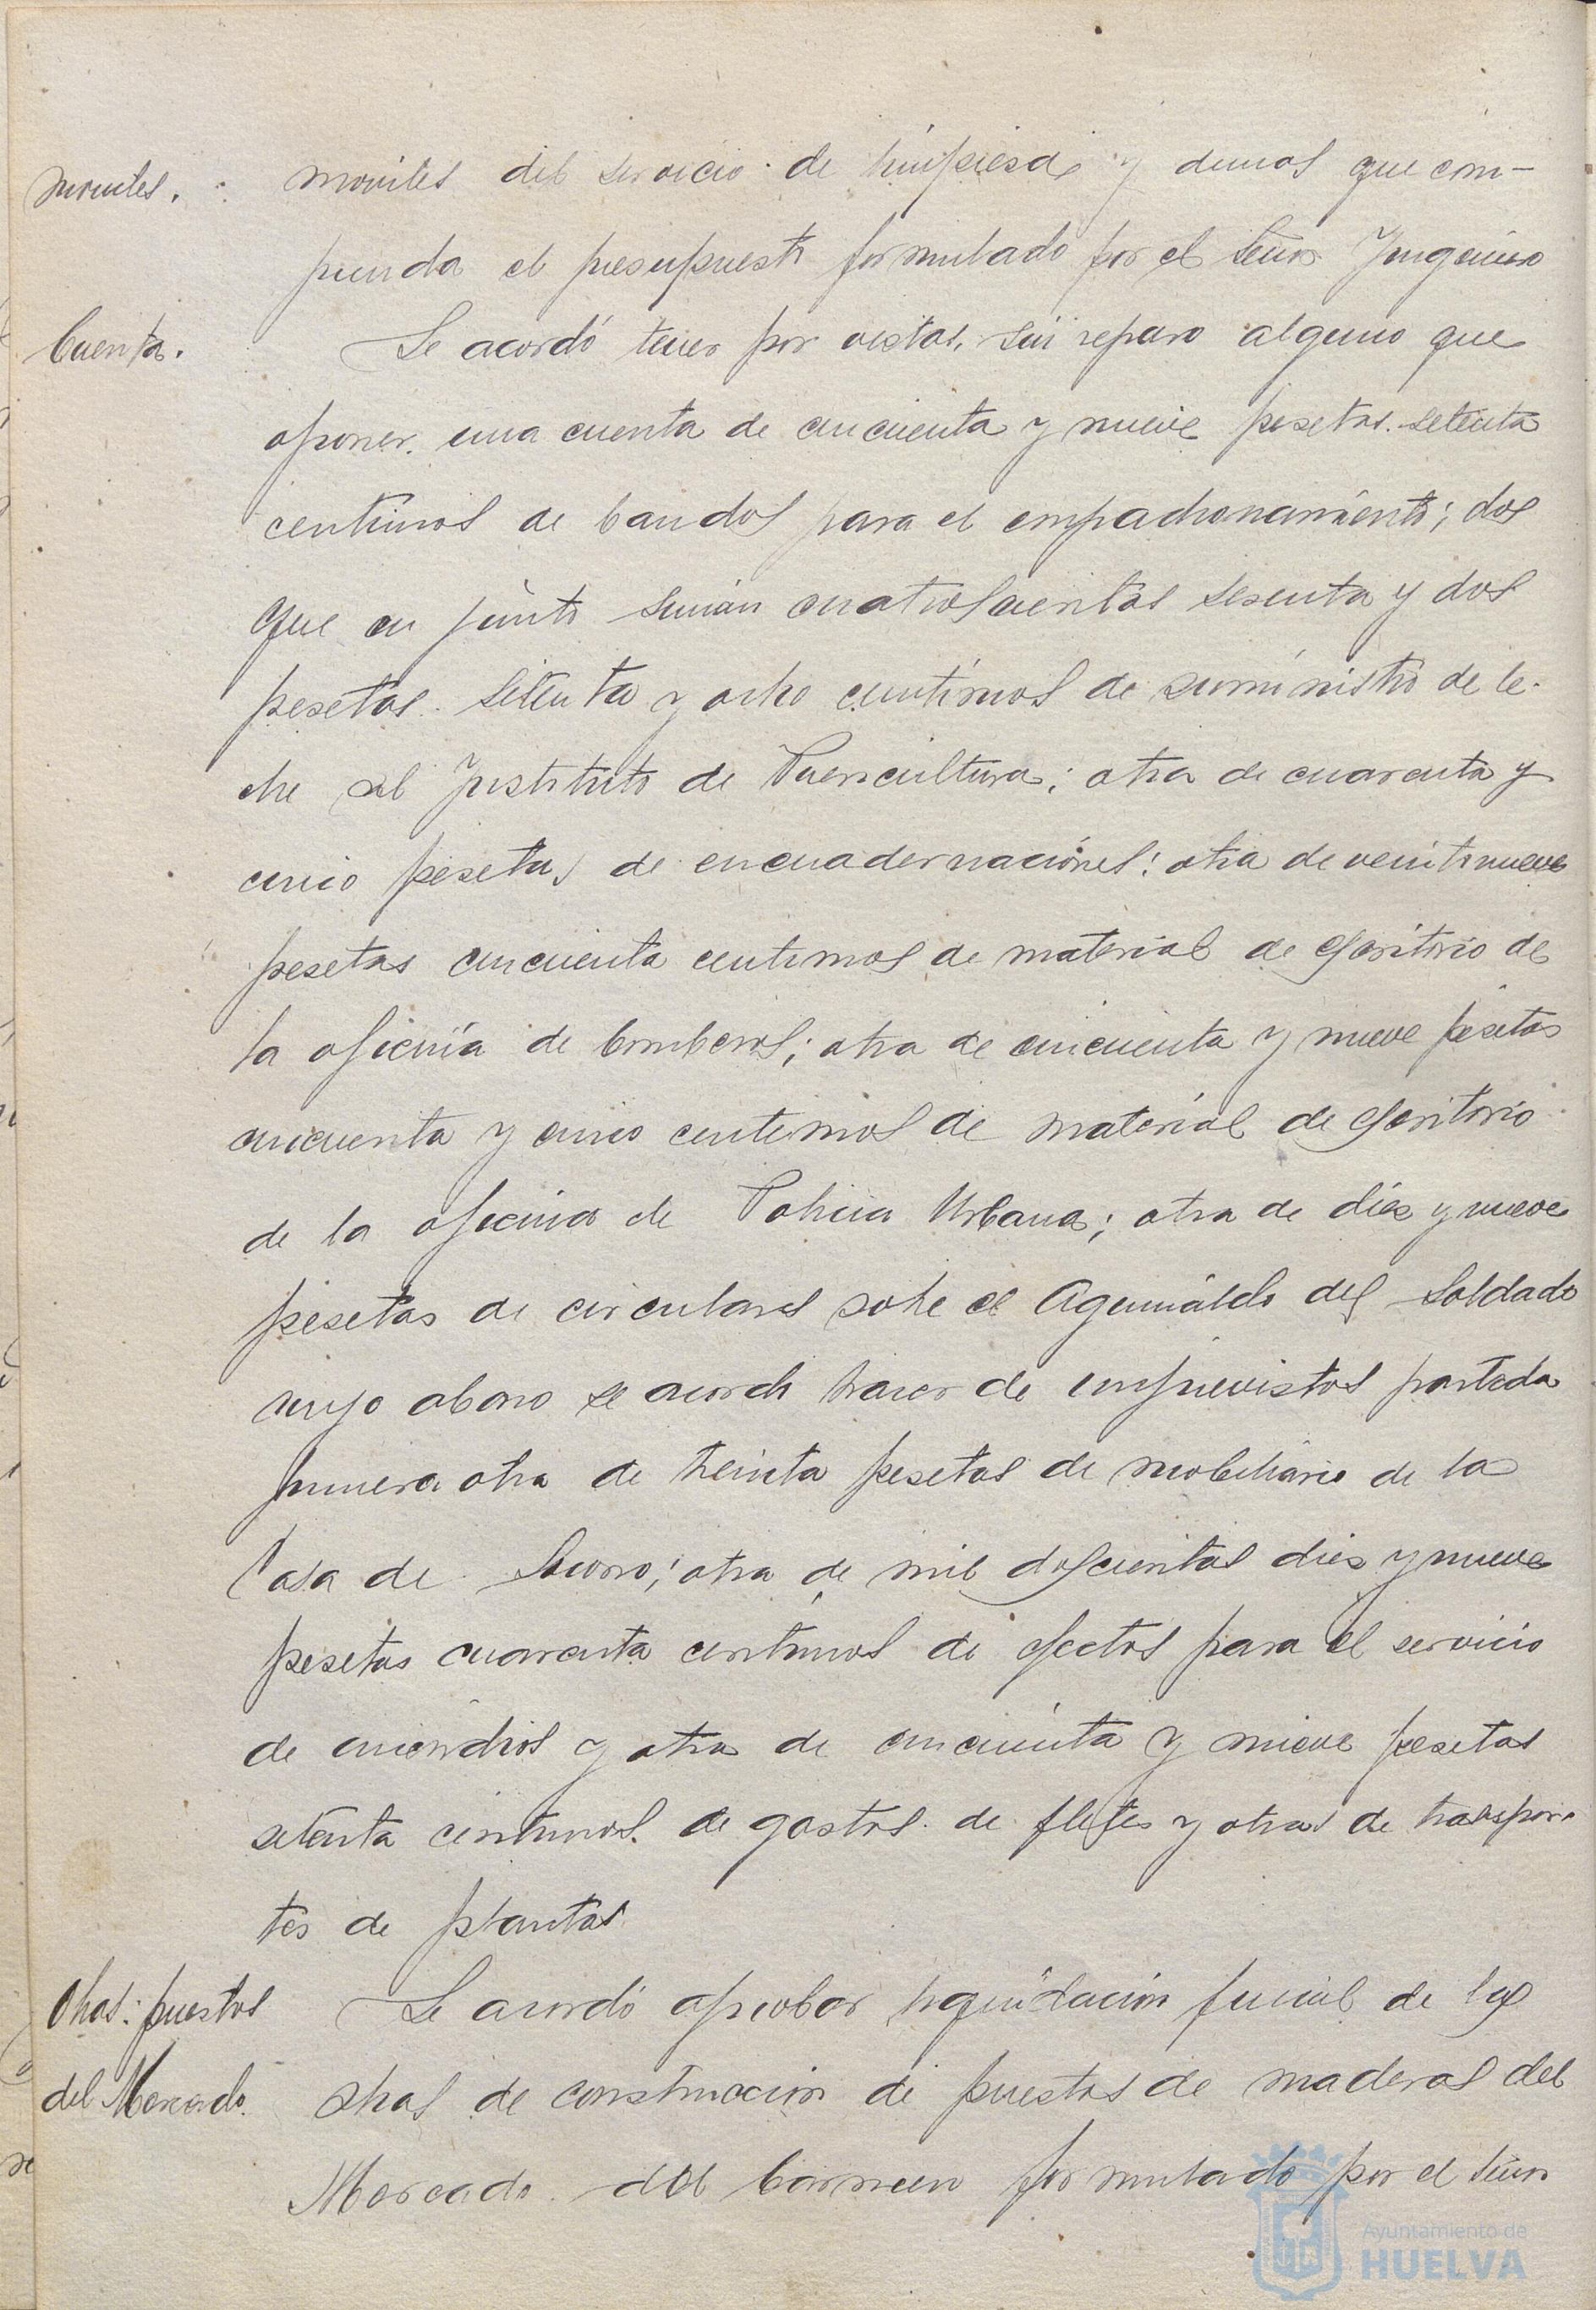 moviles. moviles del servicio de limpieza y demas que com-
prenda el presupuesto formulado por el Señor Yngeniero
Cuenta. Se acordó tener por vistas, sin reparo alguno que
oponer, una cuenta de cincuenta y nueve pesetas setenta
centimos de bandos para el empadronamiento; dos
que en junto suman cuatroscientas sesenta y dos
pesetas setenta y ocho centimos de suministro de le-
che al Ynstituto de Puericultura; otra de cuarenta y
cinco pesetas de encuadernaciones; otra de veintinueve
pesetas cincuenta centimos de material de escritorio de
la oficina de bomberos; otra de cincuenta y nueve pesetas
cincuenta y cinco centimos de material de escritorio
de la oficina de Policia Urbana; otra de diez y nueve
pesetas de circulares sobre el Aguinaldo del Soldado
cuyo abono se acordó hacer de imprevistos partida
primera otra de treinta pesetas de mobiliario de la
Casa de Socorro; otra de mil doscientas diez y nueve
pesetas cuarenta centimos de efectos para el servicio
de incendios y otra de cincuenta y nueve pesetas
setenta centimos de gastos de fletes y otras de traespor-
tes de plantas
Obras: puestos Se acordó aprobar liquidación funial de las
del Mercado. obras de construccion de puestos de maderas del
Mercado del Carmen formulado por el Señor
Ayuntamiento de
HUELVA